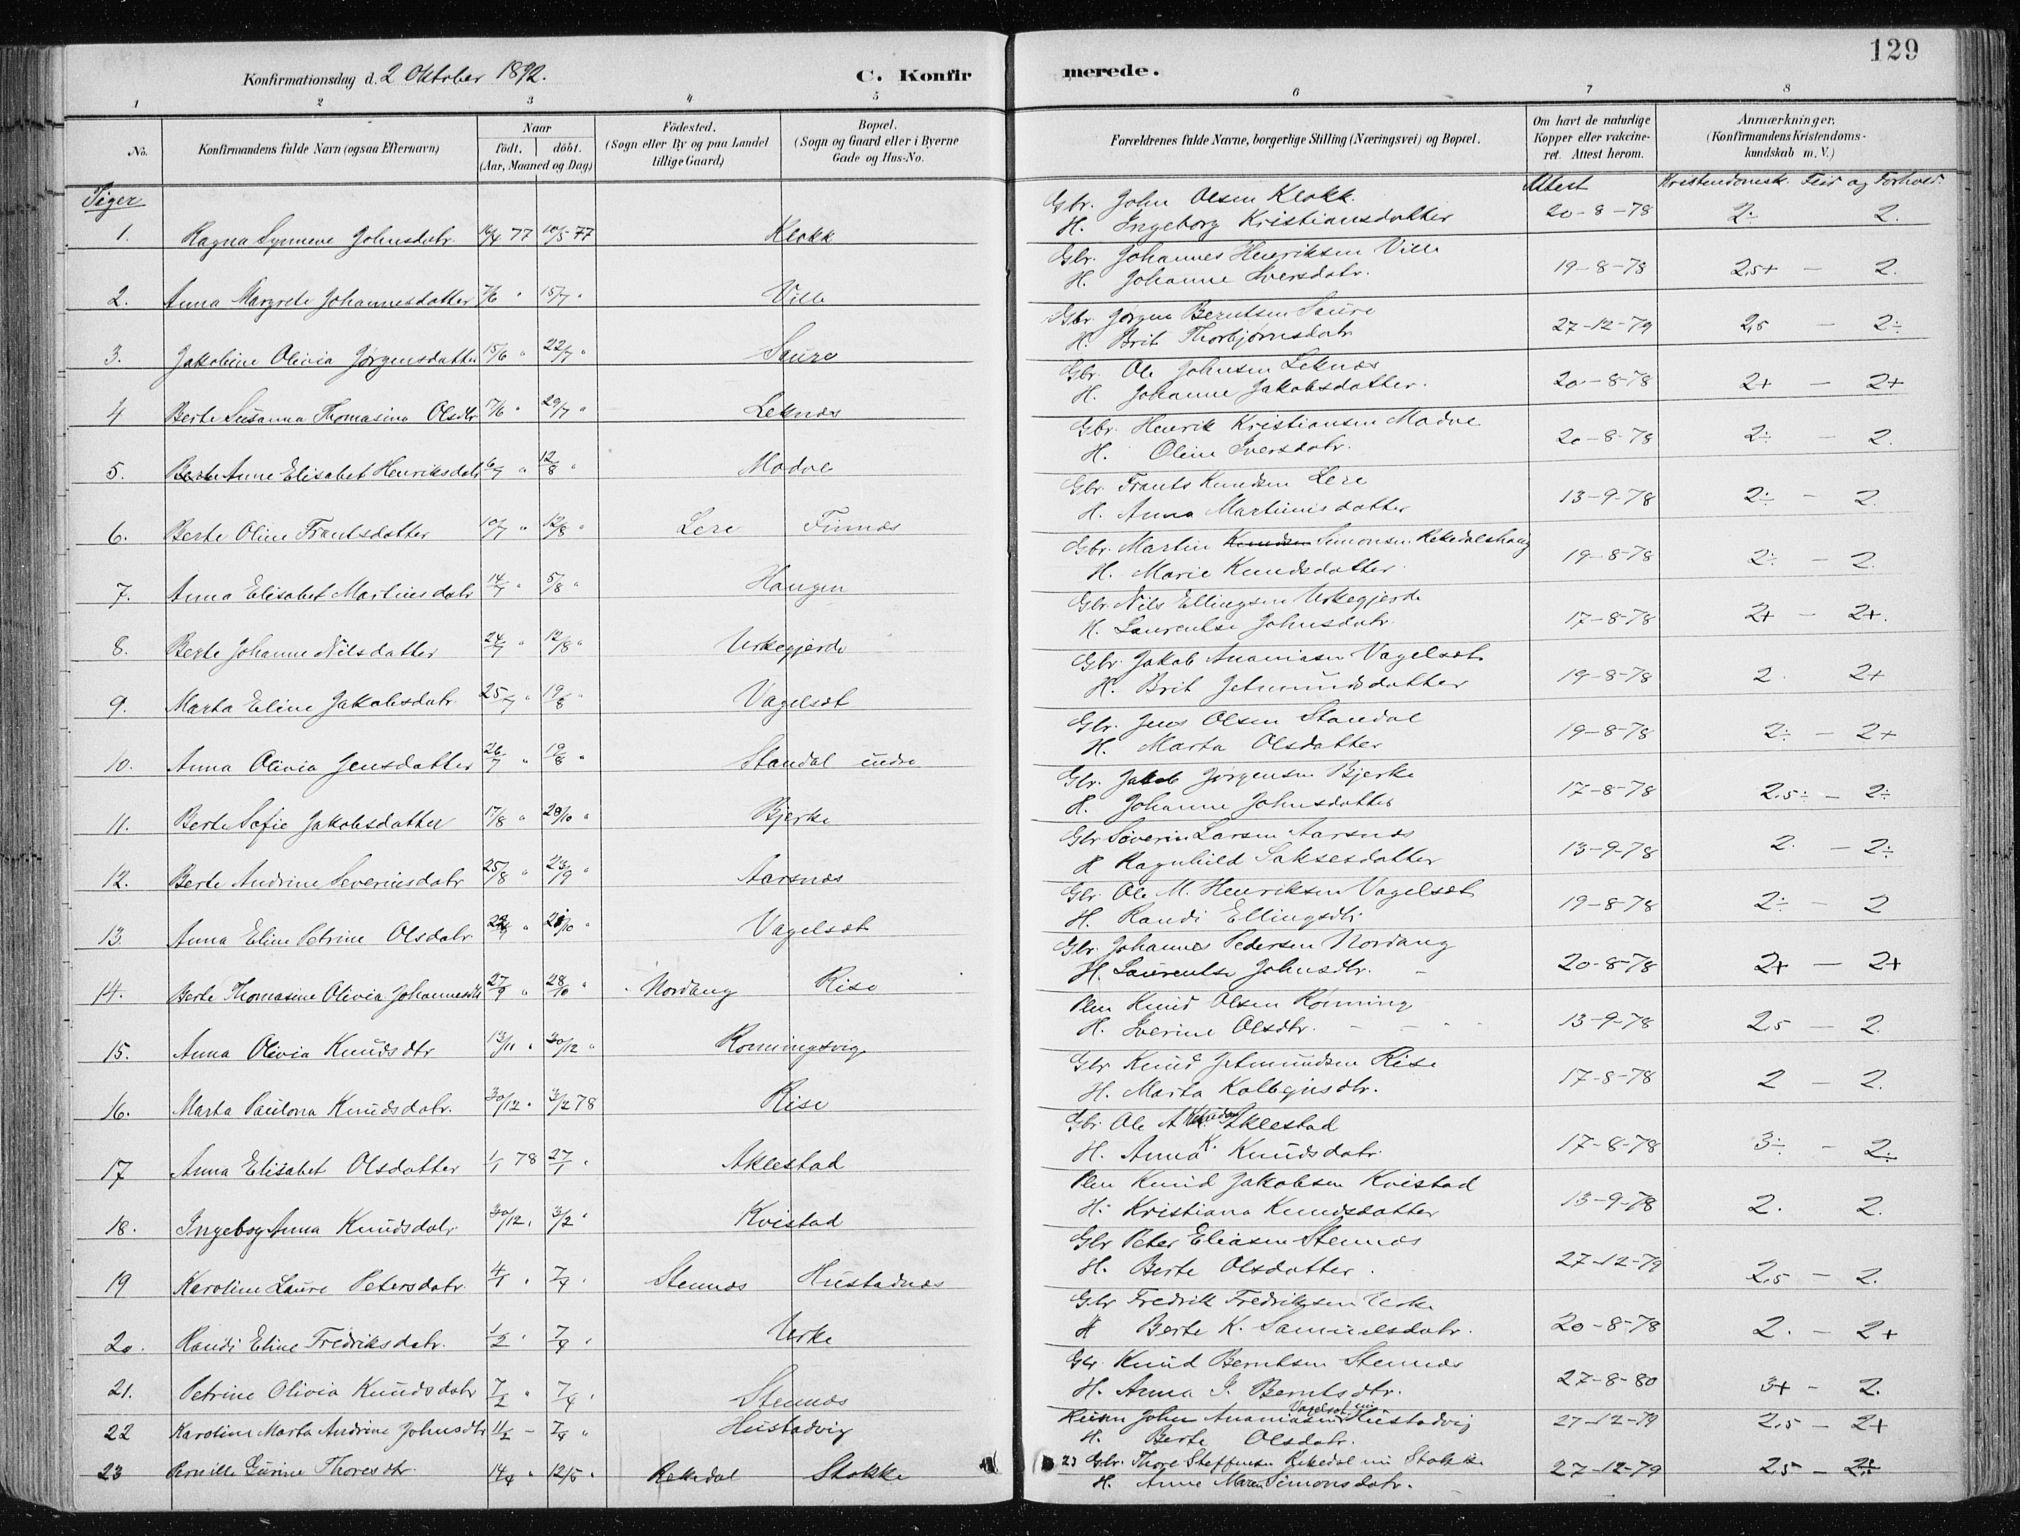 129
Konfirmationsdag d. 2 Oktober 1892.
C. Konfir merede.
1 2 3 4 5 6 7 8
No.
Konfirmandens fulde Navn (ogsaa Efternavn)
Naar
født. døbt.
(Aar, Maaned og Dag)
Fødested.
(Sogn eller By og paa Landet
tillige Gaard)
Bopæl.
(Sogn og Gaard eller i Byerne
Gade og Hus-No.
Forældrenes fulde Navne, borgerlige Stilling (Næringsvei) og Bopæl.
Om havt de naturlige
Kopper eller vakcine-
ret. Attest herom.
Anmærkninger.
(Konfirmandens Kristendoms-
kundskab m. V.)
Piger
Attest Kristendomsk. Flid og Forhold.
1. Ragna Synneve Johnsdatr. 16/4 77 10/5 77 Klokk
Gbr. John Olsen Klokk. 20-8-78 2÷ 2.
H. Ingeborg Kristiansdatter
2. Anna Margrete Johannesdatter 7/6 " 15/7 " Ville
Gbr. Johannes Henriksen Ville 19-8-78 2,5+ - 2.
H. Johanne Iversdatr.
3. Jakobine Olivia Jørgensdatter 15/6 " 22/7 " Saure
Gbr. Jørgen Berntsen Saure 27-12-79 2,5 - 2÷
H. Brit Thorbjørnsdatr
4 Berte Susanna Thomasina Olsdtr 17/6 " 29/7 " Leknæs
Gbr. Ole Johnsen Leknæs 20-8-78 2+ - 2+
H. Johanne Jakobsdatter.
5. Berte Anne Elisabet Henriksdatr 6/7 " 12/8 " Modve
Gbr. Henrik Kristiansen Modve 20-8-78 2÷ - 2.
H. Oline Iversdatr.
6. Berte Oline Frantsdatter 10/7 " 12/8 " Lere Finnæs
Gbr. Frants Knudsen Lere 13-9-78 2÷ - 2.
H. Anna Martinusdatter
7. Anna Elisabet Martinsdatr 14/7 " 5/8 " Haugen
Gbr. Martin Knudsen Simonsen Rekkedalshaug 19-8-78 2÷ - 2.
H. Marie Knudsdatter.
8. Berte Johanne Nilsdatter 24/7 " 12/8 " Urkegjerde
Gbr. Nils Ellingsen Urkegjerde 17-8-78 2+ - 2+.
H. Laurentse Johnsdatr.
9. Marta Eline Jakobsdatr 25/7 " 19/8 " Vagelsæt
Gbr. Jakob Ananiasen Vagelsæt 19-8-78 2. 2+
H. Brit Jetmundsdatter
10. Anna Olivia Jensdatter 26/7 " 19/8 " Standal indre
Gbr. Jens Olsen Standal 19-8-78 2÷ - 2+
H. Marta Olsdatter
11. Berte Sofie Jakobsdatter 17/8 " 28/10 " Bjerke
Gbr. Jakob Jørgensen Bjerke 17-8-78 2,5÷ - 2÷
H. Johanne Johnsdatter
12. Berte Andrine Severinsdatr 25/8 " 23/9 " Aarsnæs
Gbr Søverin Larsen Aarsnæs 13-9-78 2. - 2÷
H Ragnhild Saksesdatter
13. Anna Eline Petrine Olsdatr 21/10 " Vagelsæt
Gbr. Ole M. Henriksen Vagelsæt 19-8-78 2÷ - 2
H. Randi Ellingsdtr.
14. Berte Thomasine Olivia Johannesdtr 27/9 " 28/10 " Nordang Rise
Gbr. Johannes Pedersen Nordang 20-8-78 2+ - 2+
H. Laurentse Johnsdtr.
15. Anna Olivia Knudsdtr 13/11 " 30/12 " Rønningsvig
Plm Knud Olsen Rønning 13-9-78 2,5 - 2.
H. Iverine Olsdtr.
16. Marta Paulona Knudsdatr. 30/12 " 3/2 78 Rise
Gbr Knud Jetmundsen Rise 17-8-78 2 - 2.
H. Marta Kolbeinsdtr.
17 Anna Elisabet Olsdatter 1/1 78 27/1 " Aklestad
Gbr. Ole A Knudsen Aklestad 17-8-78 3÷ - 2÷
H. Anna K. Knudsdatr.
18. Ingebog Anna Knudsdatr 30/12 " 3/2 " Kvistad
Plm Knud Jakobsen Kvistad 13-9-78 2. 2.
H. Kristiana Knudsdatter
19 Karoline Laure Petersdatr. 4/1 " 7/4 " Stennæs Hustadnæs
Gbr Peter Eliasen Stennæs 27-12-79 2,5 - 2.
H. Berte Olsdatter.
20. Randi Eline Fredriksdatr. 1/2 " 7/4 " Urke
Gbr Fredrik Fredriksen Urke 20-8-78 2. - 2+
H Berte K. Samuelsdatr.
21. Petrine Olivia Knudsdatr 7/2 " 7/4 " Stennæs
Gbr Knud Berntsen Stennæs 27-8-80 3+ - 2.
H. Anna G. Berntsdtr.
22 Karoline Marta Andrine Johnsdtr 11/2 - 7/4 " Hustadvig
Husm John Ananiasen Vagelsæt nu Hustadvig 27-12-79 2,5 - 2+
H. Berte Olsdatr.
23 Pernille Gurine Thoresdtr. 14/4 " 12/5 " Rekedal Stokke
23 Gbr. Thore Steffensen Rekedal nu Stokke 27-12-79 2,5 -
H. Anne Maren Simonsdatr.